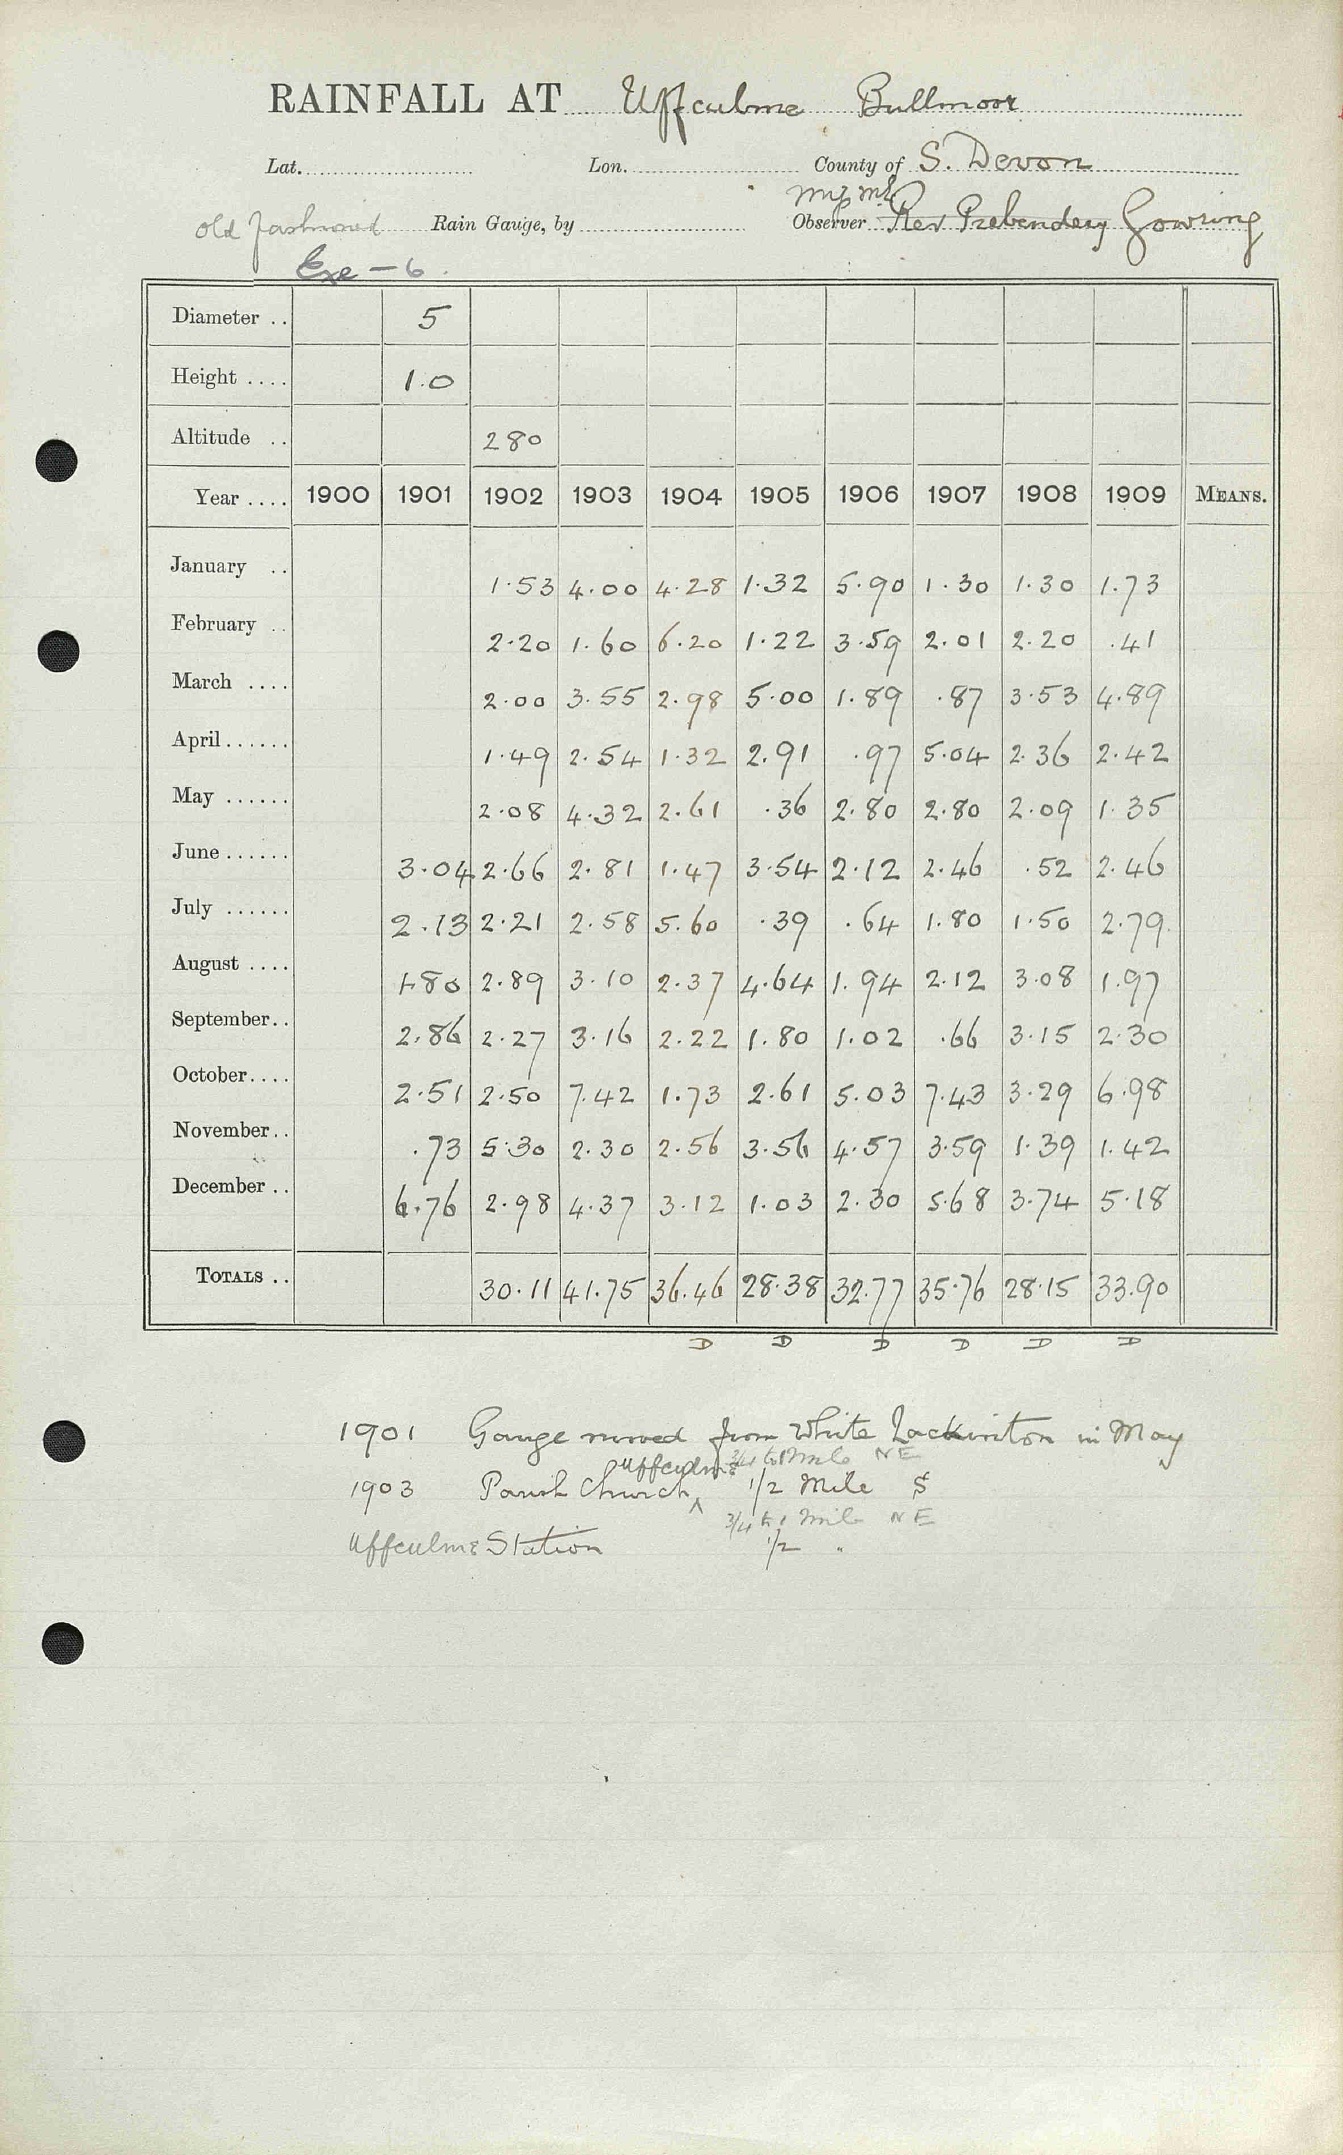 RAINFALL AT Uffculme Bullmoor
Lat. Lon. County of S. Devon
old fashioned Rain Gauge, by Observer Rev Prebendary Gowring
Exe - 6.
Diameter .. 5
Height .... 1.0
Altitude .. 280
Year .... 1900 1901 1902 1903 1904 1905 1906 1907 1908 1909 MEANS.
January .. 1.53 4.00 4.28 1.32 5.90 1.30 1.30 1.73
February .. 2.20 1.60 6.20 1.22 3.59 2.01 2.20 .41
March .... 2.00 3.55 2.98 5.00 1.89 .87 3.53 4.89
April ...... 1.49 2.54 1.32 2.91 .97 5.04 2.36 2.42
May ...... 2.08 4.32 2.61 .36 2.80 2.80 2.09 1.35
June ...... 3.04 2.66 2.81 1.47 3.54 2.12 2.46 .52 2.46
July ...... 2.13 2.21 2.58 5.60 .39 .64 1.80 1.50 2.79
August .... 1.80 2.89 3.10 2.37 4.64 1.94 2.12 3.08 1.97
September.. 2.86 2.27 3.16 2.22 1.80 1.02 .66 3.15 2.30
October.... 2.51 2.50 7.42 1.73 2.61 5.03 7.43 3.29 6.98
November.. .73 5.30 2.30 2.56 3.56 4.57 3.59 1.39 1.42
December .. 6.76 2.98 4.37 3.12 1.03 2.30 5.68 3.74 5.18
TOTALS .. 30.11 41.75 36.46 28.38 32.77 35.76 28.15 33.90
D D D D D D
1901 Gauge moved from White Lackington in May
Uffculme 3/4 to 1 Mile NE
1903 Parish Church 1/2 Mile S
3/4 to 1 Mile NE
Uffculme Station 1/2 "